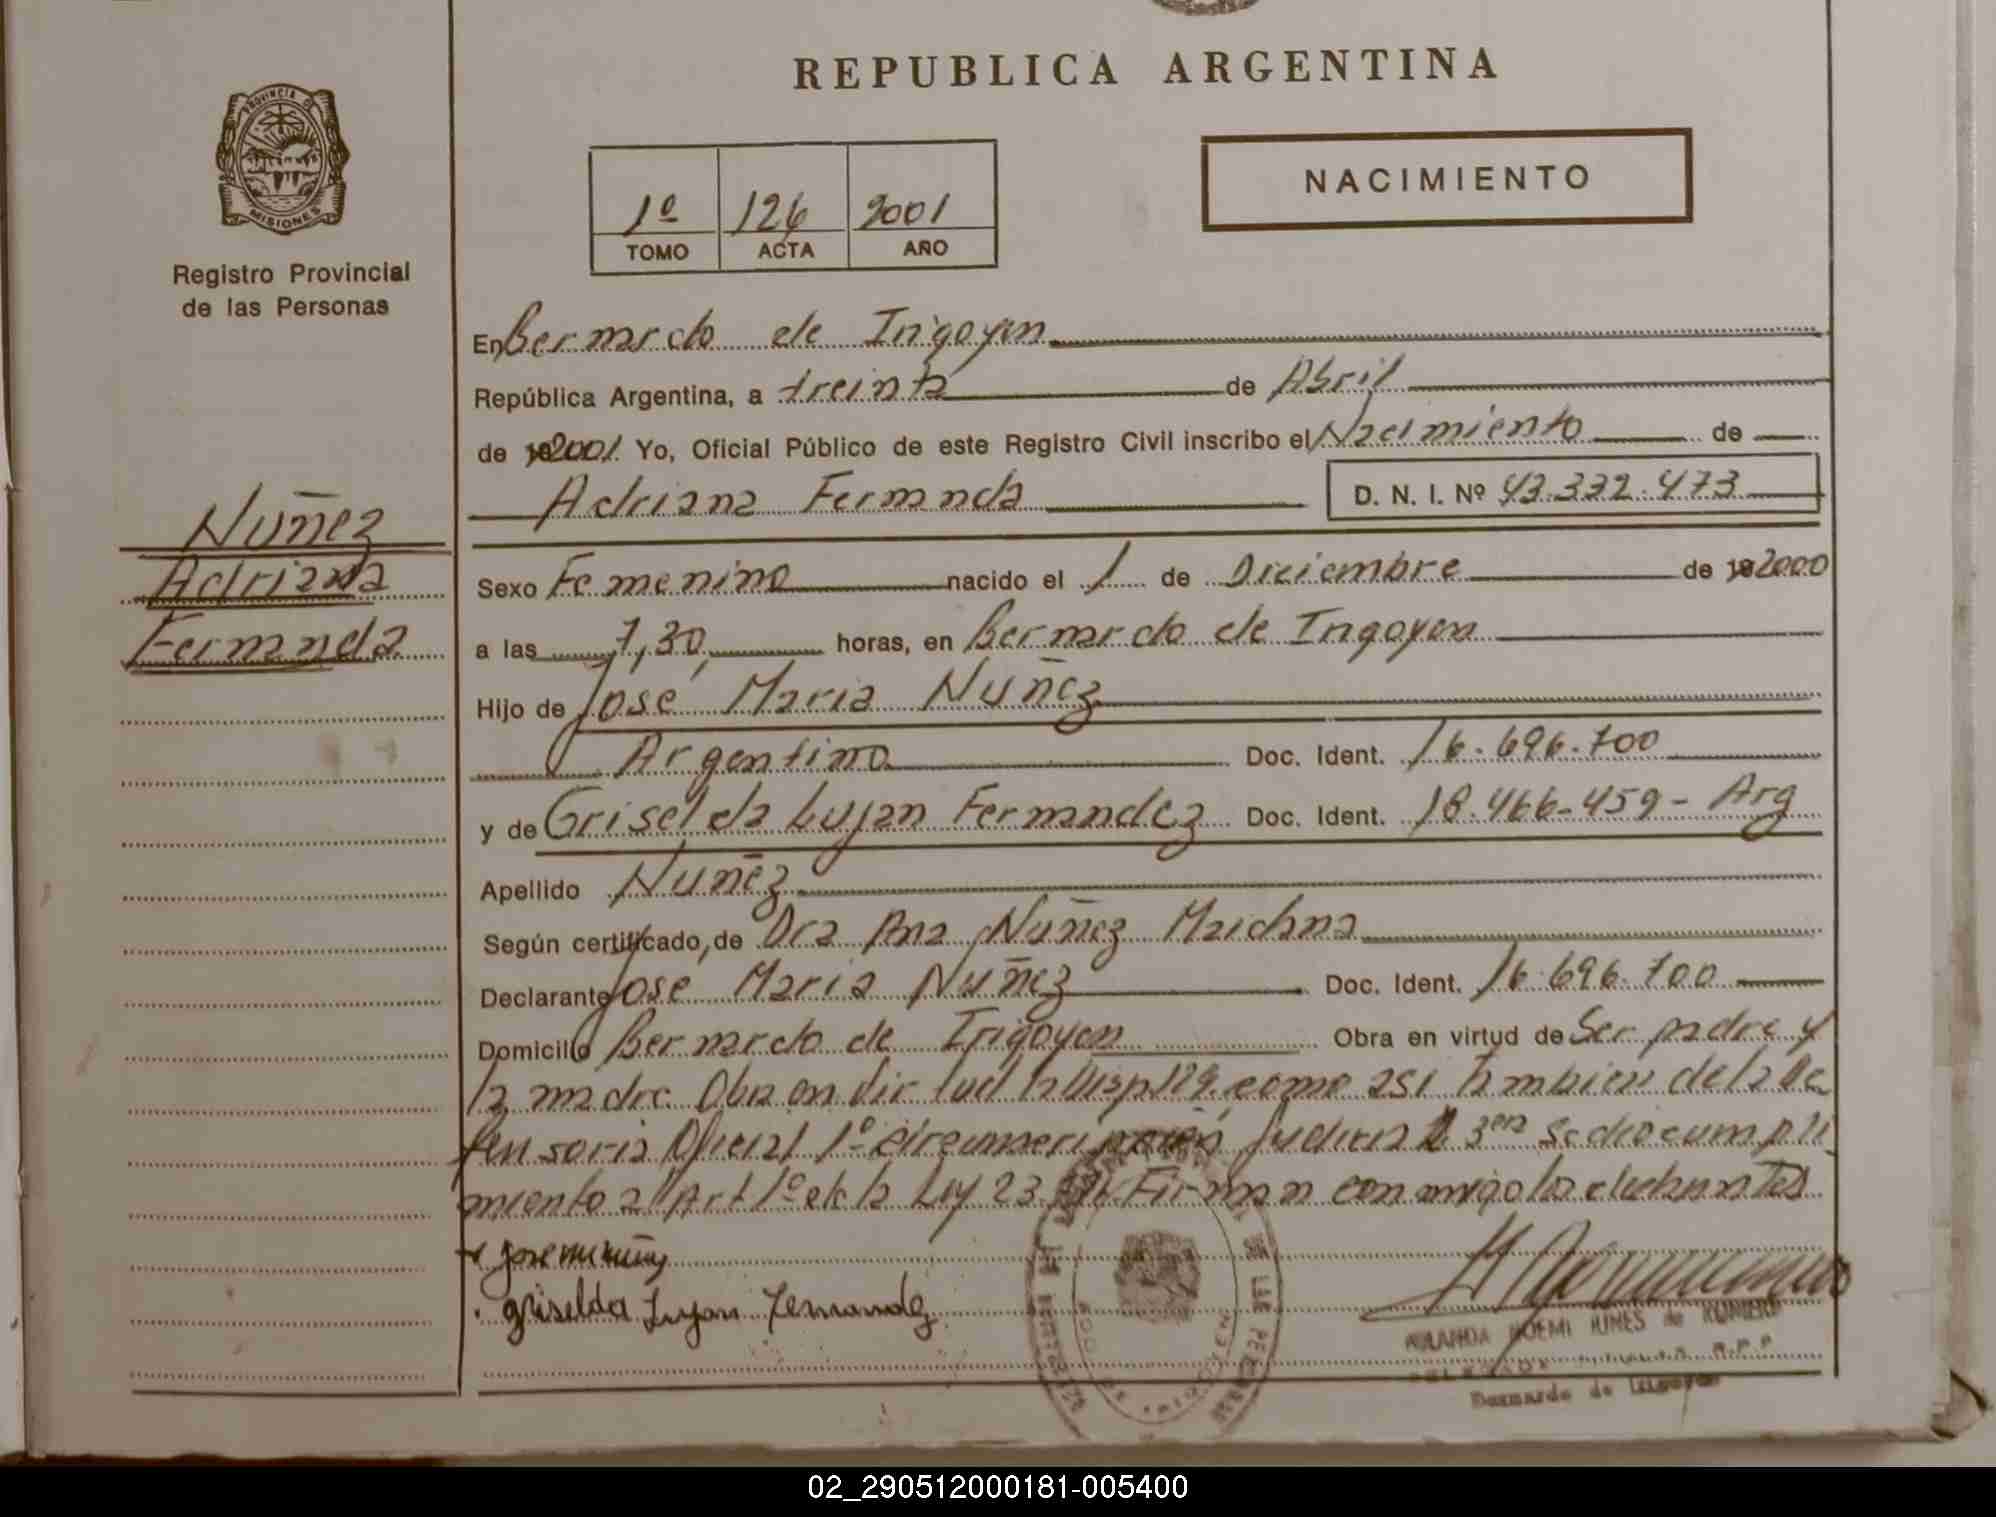 REPUBLICA ARGENTINA
PROVINCIA DE
MISIONES
Registro Provincial
de las Personas
1º 126 2001
TOMO ACTA AÑO
NACIMIENTO
En Bernardo de Irigoyen
República Argentina, a treinta de Abril
de 2001. Yo, Oficial Público de este Registro Civil inscribo el Nacimiento de
Adriana Fernanda D. N. I. Nº 43.332.473
Nuñez
Adriana
Fernanda
Sexo Femenino nacido el 1 de Diciembre de 2000
a las 7,30 horas, en Bernardo de Irigoyen
Hijo de José Maria Nuñez
Argentino Doc. Ident. 16.696.700
y de Griselda Lujan Fernandez Doc. Ident. 18.466-459- Arg
Apellido Nuñez
Según certificado, de Dra Ana Nuñez Maidana
Declarante José Maria Nuñez Doc. Ident. 16.696.700
Domicilio Bernardo de Irigoyen Obra en virtud de Ser padre y
la madre Obra en virtud la como asi tambien de la De
fensoria Oficial 1º circunscripción judicial 3era Se dio cumpli
miento al Art 1º de la Ley 23. Firman conmigo los declarantes
Griselda Lujan Fernandez
NOEMI de ROMERO
R.P.P.
Bernardo de Irigoyen
02_290512000181-005400